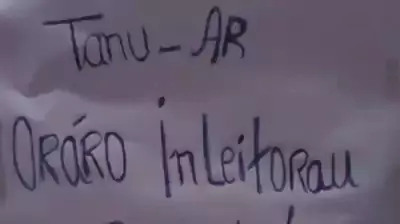 Tanu - AR
ORÁRO InLeitoRau